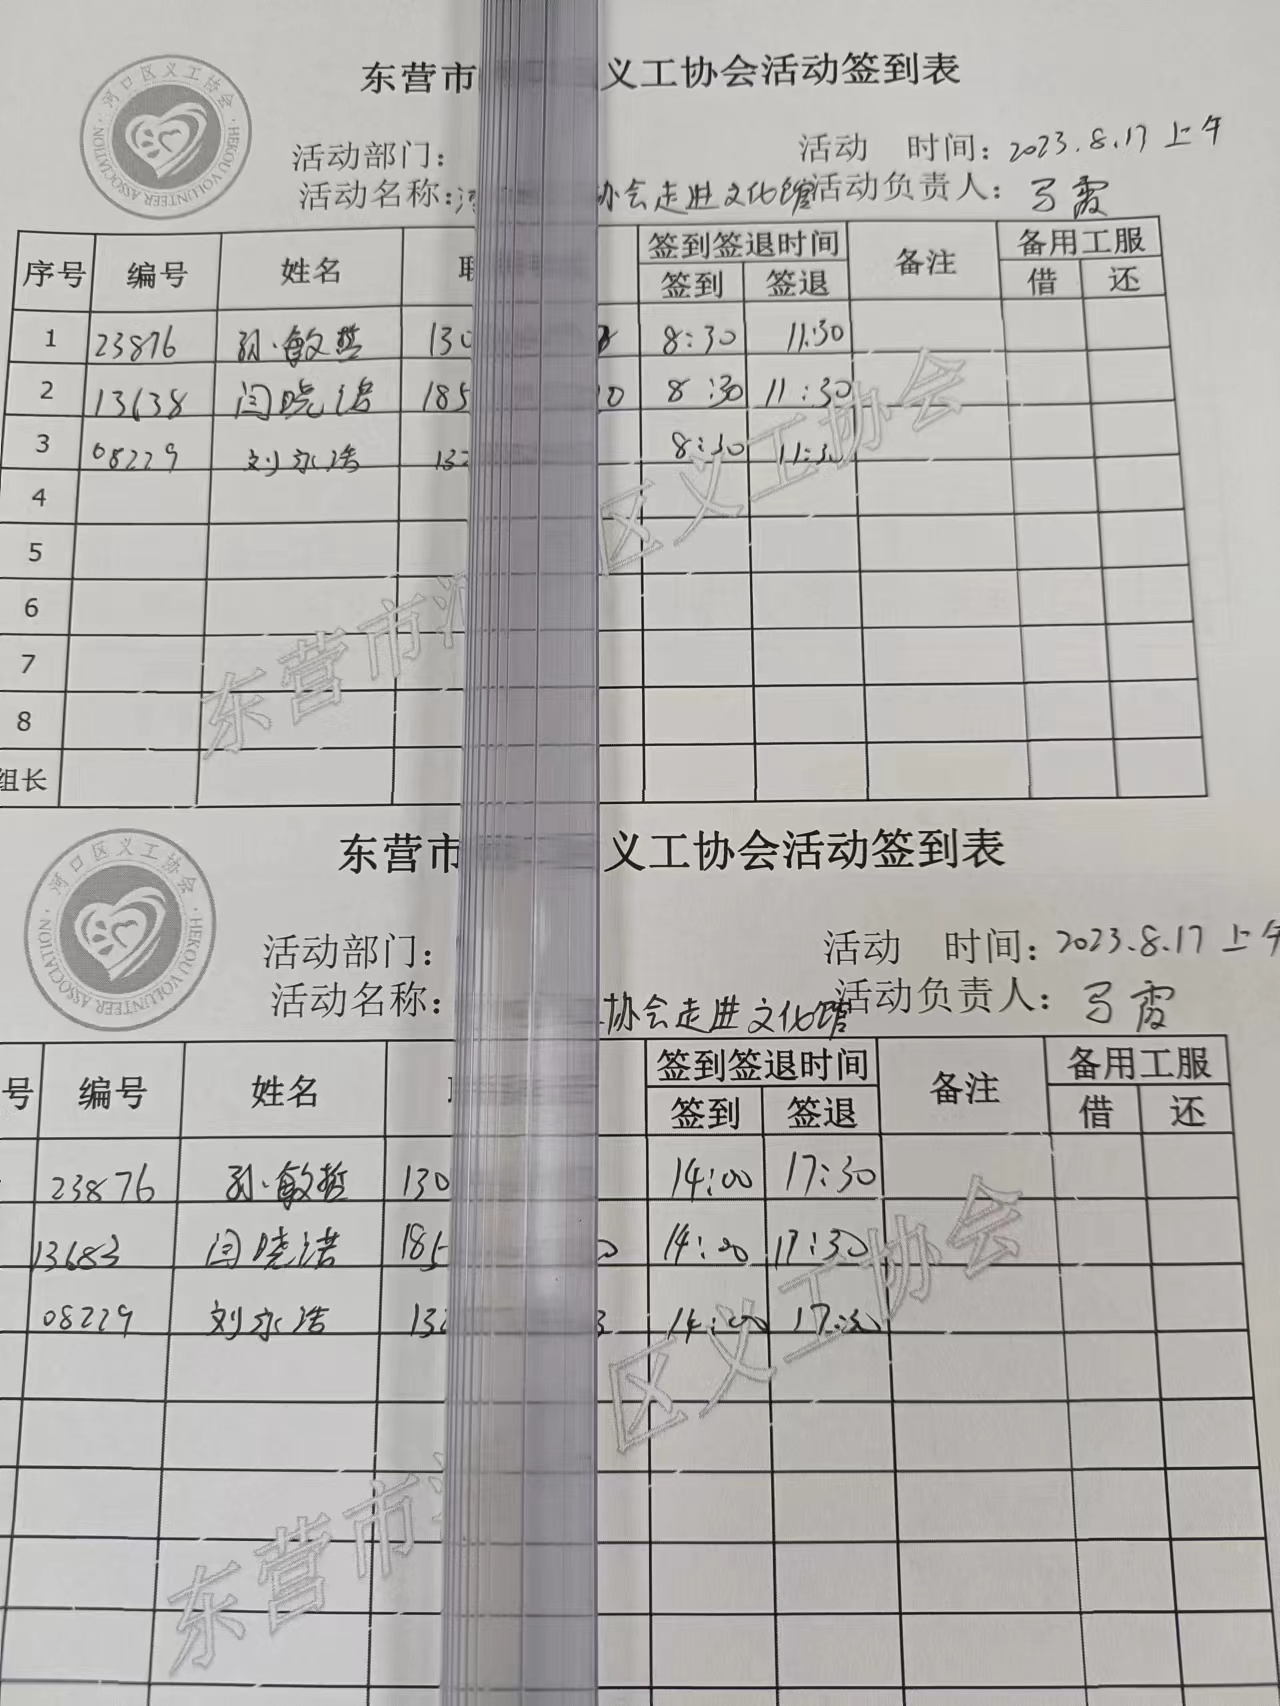 河口区义工协会
HEKOU VOLUNTEER ASSOCIATION
东营市 义工协会活动签到表
活动部门： 活动 时间：2023.8.17 上午
活动名称： 协会走进文化馆 活动负责人：马霞
序号 编号 姓名 签到签退时间 备注 备用工服
签到 签退 借 还
1 23876 孙敏哲 130 8:30 11:30
2 13638 闫晓诺 185 10 8:30 11:30
3 08229 刘永浩 132 8:30 11:30
4
5
6
7
8
组长
东营市 区义工协会
河口区义工协会
HEKOU VOLUNTEER ASSOCIATION
东营市 义工协会活动签到表
活动部门： 活动 时间：2023.8.17 上午
活动名称： 协会走进文化馆 活动负责人：马霞
号 编号 姓名 签到签退时间 备注 备用工服
签到 签退 借 还
23876 孙敏哲 130 14:00 17:30
13683 闫晓诺 185 0 14:00 17:30
08229 刘永浩 132 3 14:00 17:30
东营市 区义工协会